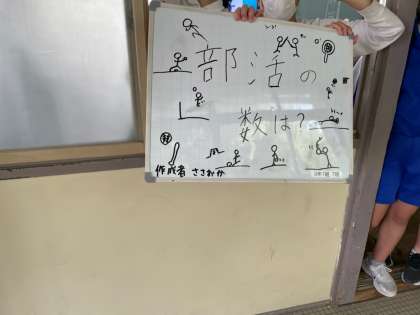 部活の
数は?
作成者 ささおか